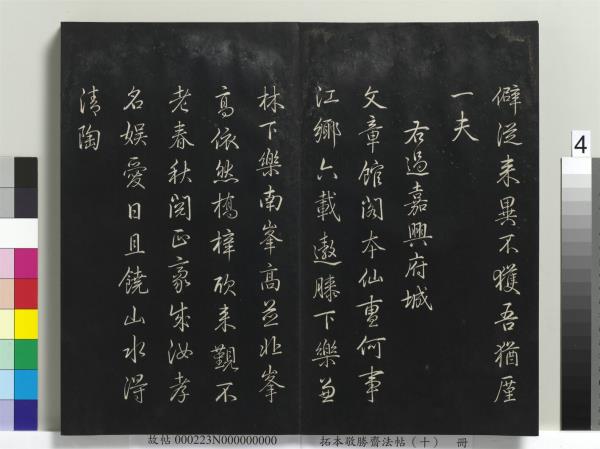 僻從来畏不獲吾猶厪
一夫
右過嘉興府城
文章館閣本仙曹何事
江鄉六載遨膝下樂兼
林下樂南峯高並北峯
高依然橋梓欣来覲不
老春秋閲正豪成汝孝
名娱愛日且饒山水得
清陶
4
故帖 000223N000000000
拓本敬勝齋法帖（十） 冊